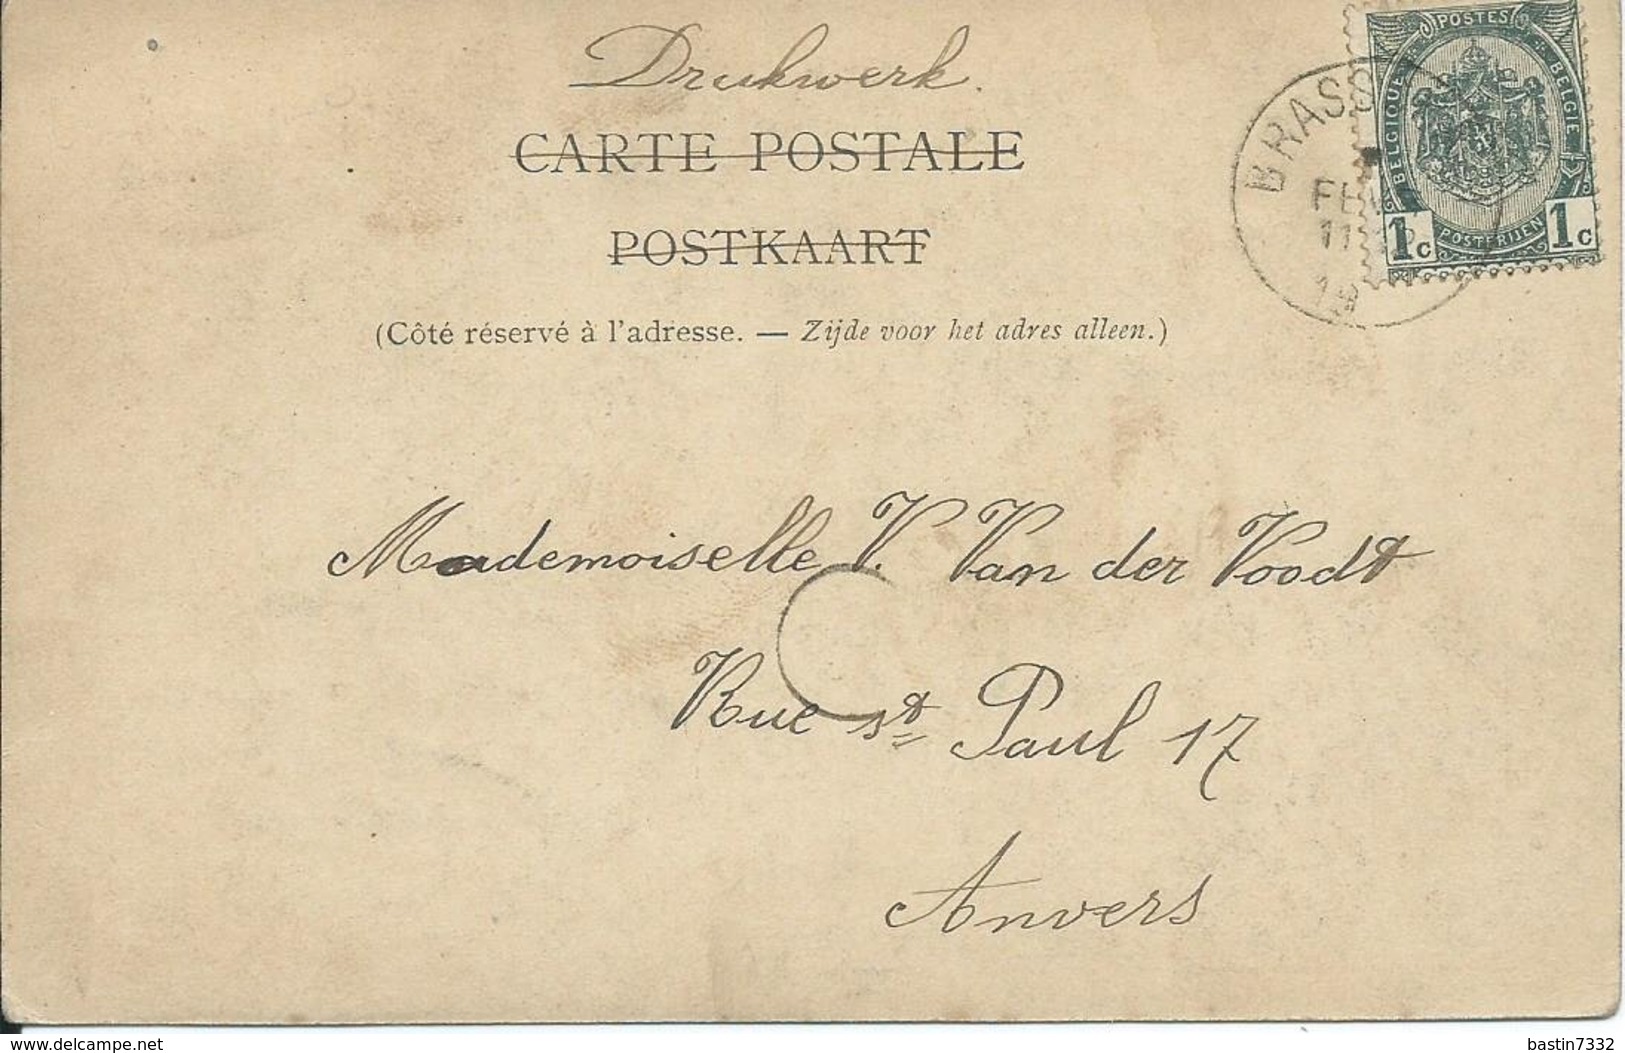 Drukwerk.
CARTE POSTALE
POSTKAART
(Côté réservé à l'adresse. — Zijde voor het adres alleen.)
POSTES
BELGIQUE
BELGIE
1c
POSTERIJEN
1c
BRASS
FEV
11
19
Mademoiselle V. Van der Voodt
Rue st Paul 17
Anvers
www.delcampe.net
bastin7332